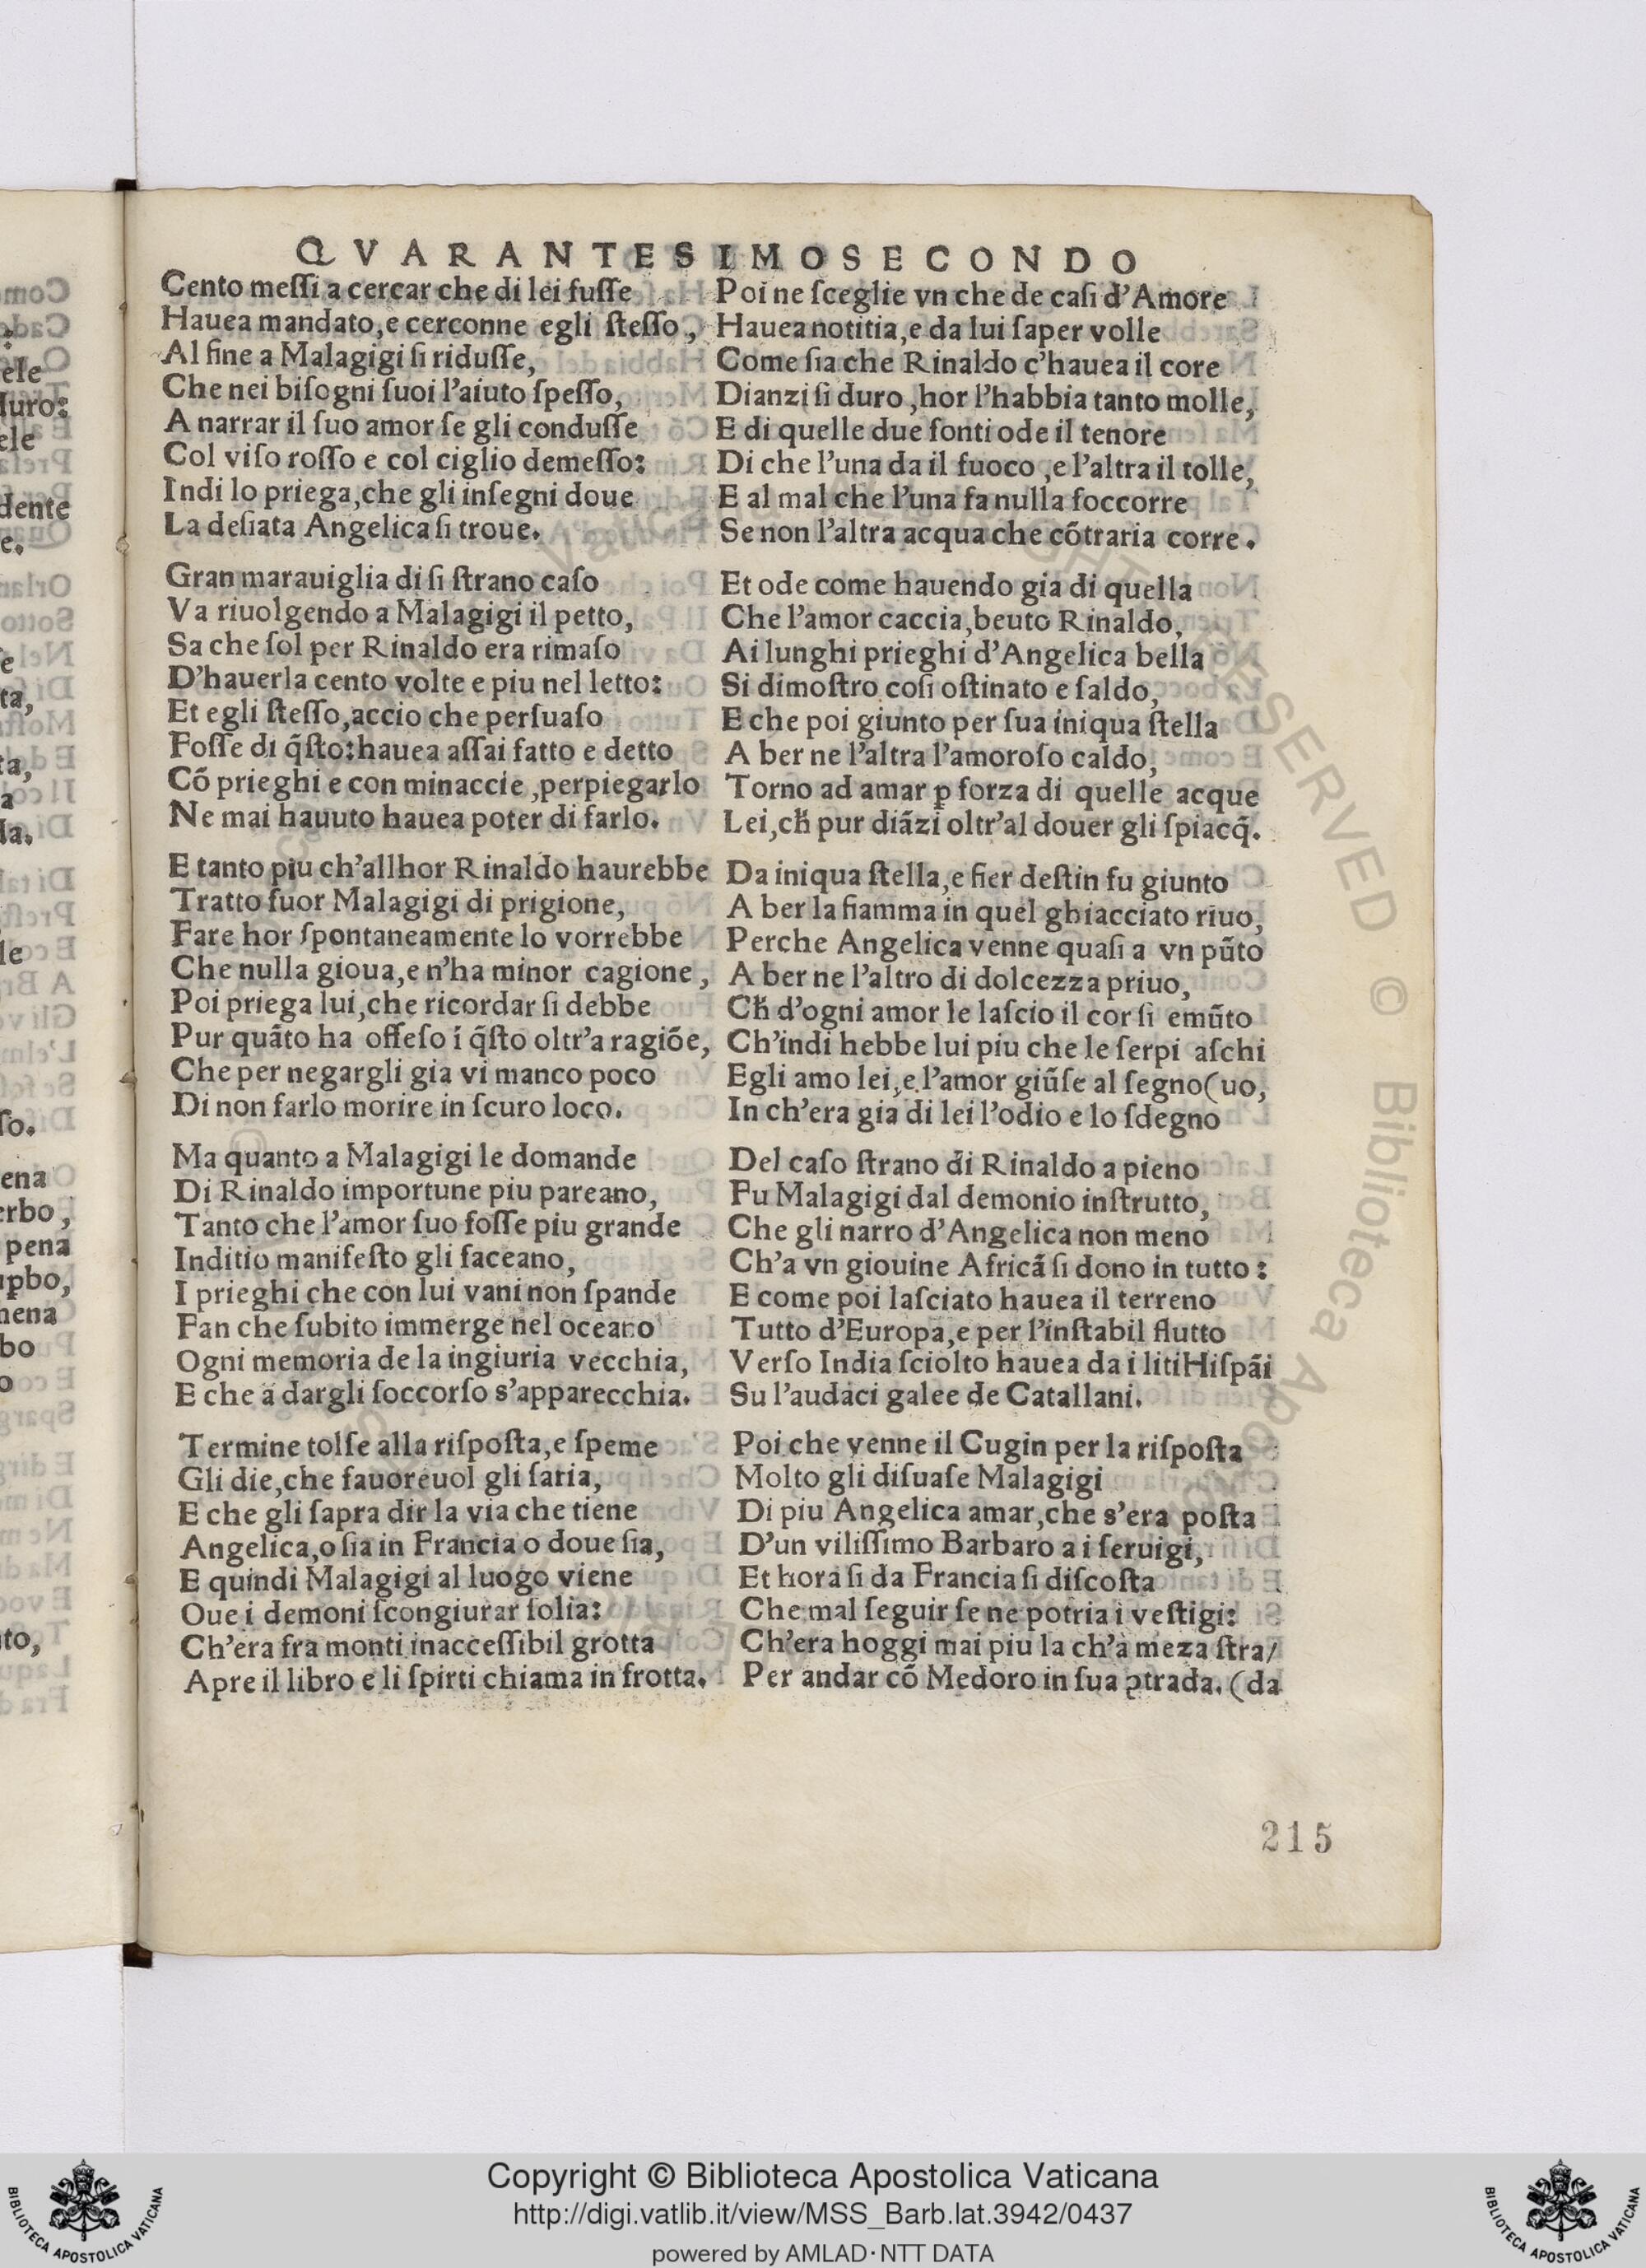 QVARANTESIMOSECONDO
Cento meſſi a cercar che di lei fuſſe
Hauea mandato, e cerconne egli ſteſſo,
Al fine a Malagigi ſi riduſſe,
Che nei biſogni ſuoi l'aiuto ſpeſſo,
A narrar il ſuo amor ſe gli conduſſe
Col viſo roſſo e col ciglio demeſſo:
Indi lo priega, che gli inſegni doue
La deſiata Angelica ſi troue.
Gran marauiglia di ſi ſtrano caſo
Va riuolgendo a Malagigi il petto,
Sa che ſol per Rinaldo era rimaſo
D'hauerla cento volte e piu nel letto:
Et egli ſteſſo, accio che perſuaſo
Foſſe di q̃ſto: hauea aſſai fatto e detto
Cõ prieghi e con minaccie, perpiegarlo
Ne mai hauuto hauea poter di farlo.
E tanto piu ch'allhor Rinaldo haurebbe
Tratto fuor Malagigi di prigione,
Fare hor ſpontaneamente lo vorrebbe
Che nulla gioua, e n'ha minor cagione,
Poi priega lui, che ricordar ſi debbe
Pur quãto ha offeſo í q̃ſto oltr'a ragiõe,
Che per negargli gia vi manco poco
Di non farlo morire in ſcuro loco.
Ma quanto a Malagigi le domande
Di Rinaldo importune piu pareano,
Tanto che l'amor ſuo foſſe piu grande
Inditio manifeſto gli faceano,
I prieghi che con lui vani non ſpande
Fan che ſubito immerge nel oceano
Ogni memoria de la ingiuria vecchia,
E che a dargli ſoccorſo s'apparecchia.
Termine tolſe alla riſpoſta, e ſpeme
Gli die, che fauoreuol gli ſaria,
E che gli ſapra dir la via che tiene
Angelica, o ſia in Francia o doue ſia,
E quindi Malagigi al luogo viene
Oue i demoni ſcongiurar ſolia:
Ch'era fra monti inacceſſibil grotta
Apre il libro e li ſpirti chiama in frotta.
Poi ne ſceglie vn che de caſi d'Amore
Hauea notitia, e da lui ſaper volle
Come ſia che Rinaldo c'hauea il core
Dianzi ſi duro, hor l'habbia tanto molle,
E di quelle due fonti ode il tenore
Di che l'una da il fuoco, e l'altra il tolle,
E al mal che l'una fa nulla ſoccorre
Se non l'altra acqua che cõtraria corre.
Et ode come hauendo gia di quella
Che l'amor caccia, beuto Rinaldo,
Ai lunghi prieghi d'Angelica bella
Si dimoſtro coſi oſtinato e ſaldo,
E che poi giunto per ſua iniqua ſtella
A ber ne l'altra l'amoroſo caldo,
Torno ad amar ꝑ forza di quelle acque
Lei, cħ pur diãzi oltr'al douer gli ſpiacq̃.
Da iniqua ſtella, e fier deſtin fu giunto
A ber la fiamma in quel ghiacciato riuo,
Perche Angelica venne quaſi a vn pũto
A ber ne l'altro di dolcezza priuo,
Cħ d'ogni amor le laſcio il cor ſi emũto
Ch'indi hebbe lui piu che le ſerpi aſchi
Egli amo lei, e l'amor giũſe al ſegno (uo,
In ch'era gia di lei l'odio e lo ſdegno
Del caſo ſtrano di Rinaldo a pieno
Fu Malagigi dal demonio inſtrutto,
Che gli narro d'Angelica non meno
Ch'a vn giouine Africã ſi dono in tutto:
E come poi laſciato hauea il terreno
Tutto d'Europa, e per l'inſtabil flutto
Verſo India ſciolto hauea da i liti Hiſpãi
Su l'audaci galee de Catallani.
Poi che venne il Cugin per la riſpoſta
Molto gli diſuaſe Malagigi
Di piu Angelica amar, che s'era poſta
D'un viliſſimo Barbaro a i ſeruigi,
Et hora ſi da Francia ſi diſcoſta
Che mal ſeguir ſe ne potria i veſtigi:
Ch'era hoggi mai piu la ch'a meza ſtra/
Per andar cõ Medoro in ſua ꝯtrada. (da
215
Copyright © Biblioteca Apostolica Vaticana
http://digi.vatlib.it/view/MSS_Barb.lat.3942/0437
powered by AMLAD·NTT DATA
BIBLIOTECA APOSTOLICA VATICANA
BIBLIOTECA APOSTOLICA VATICANA